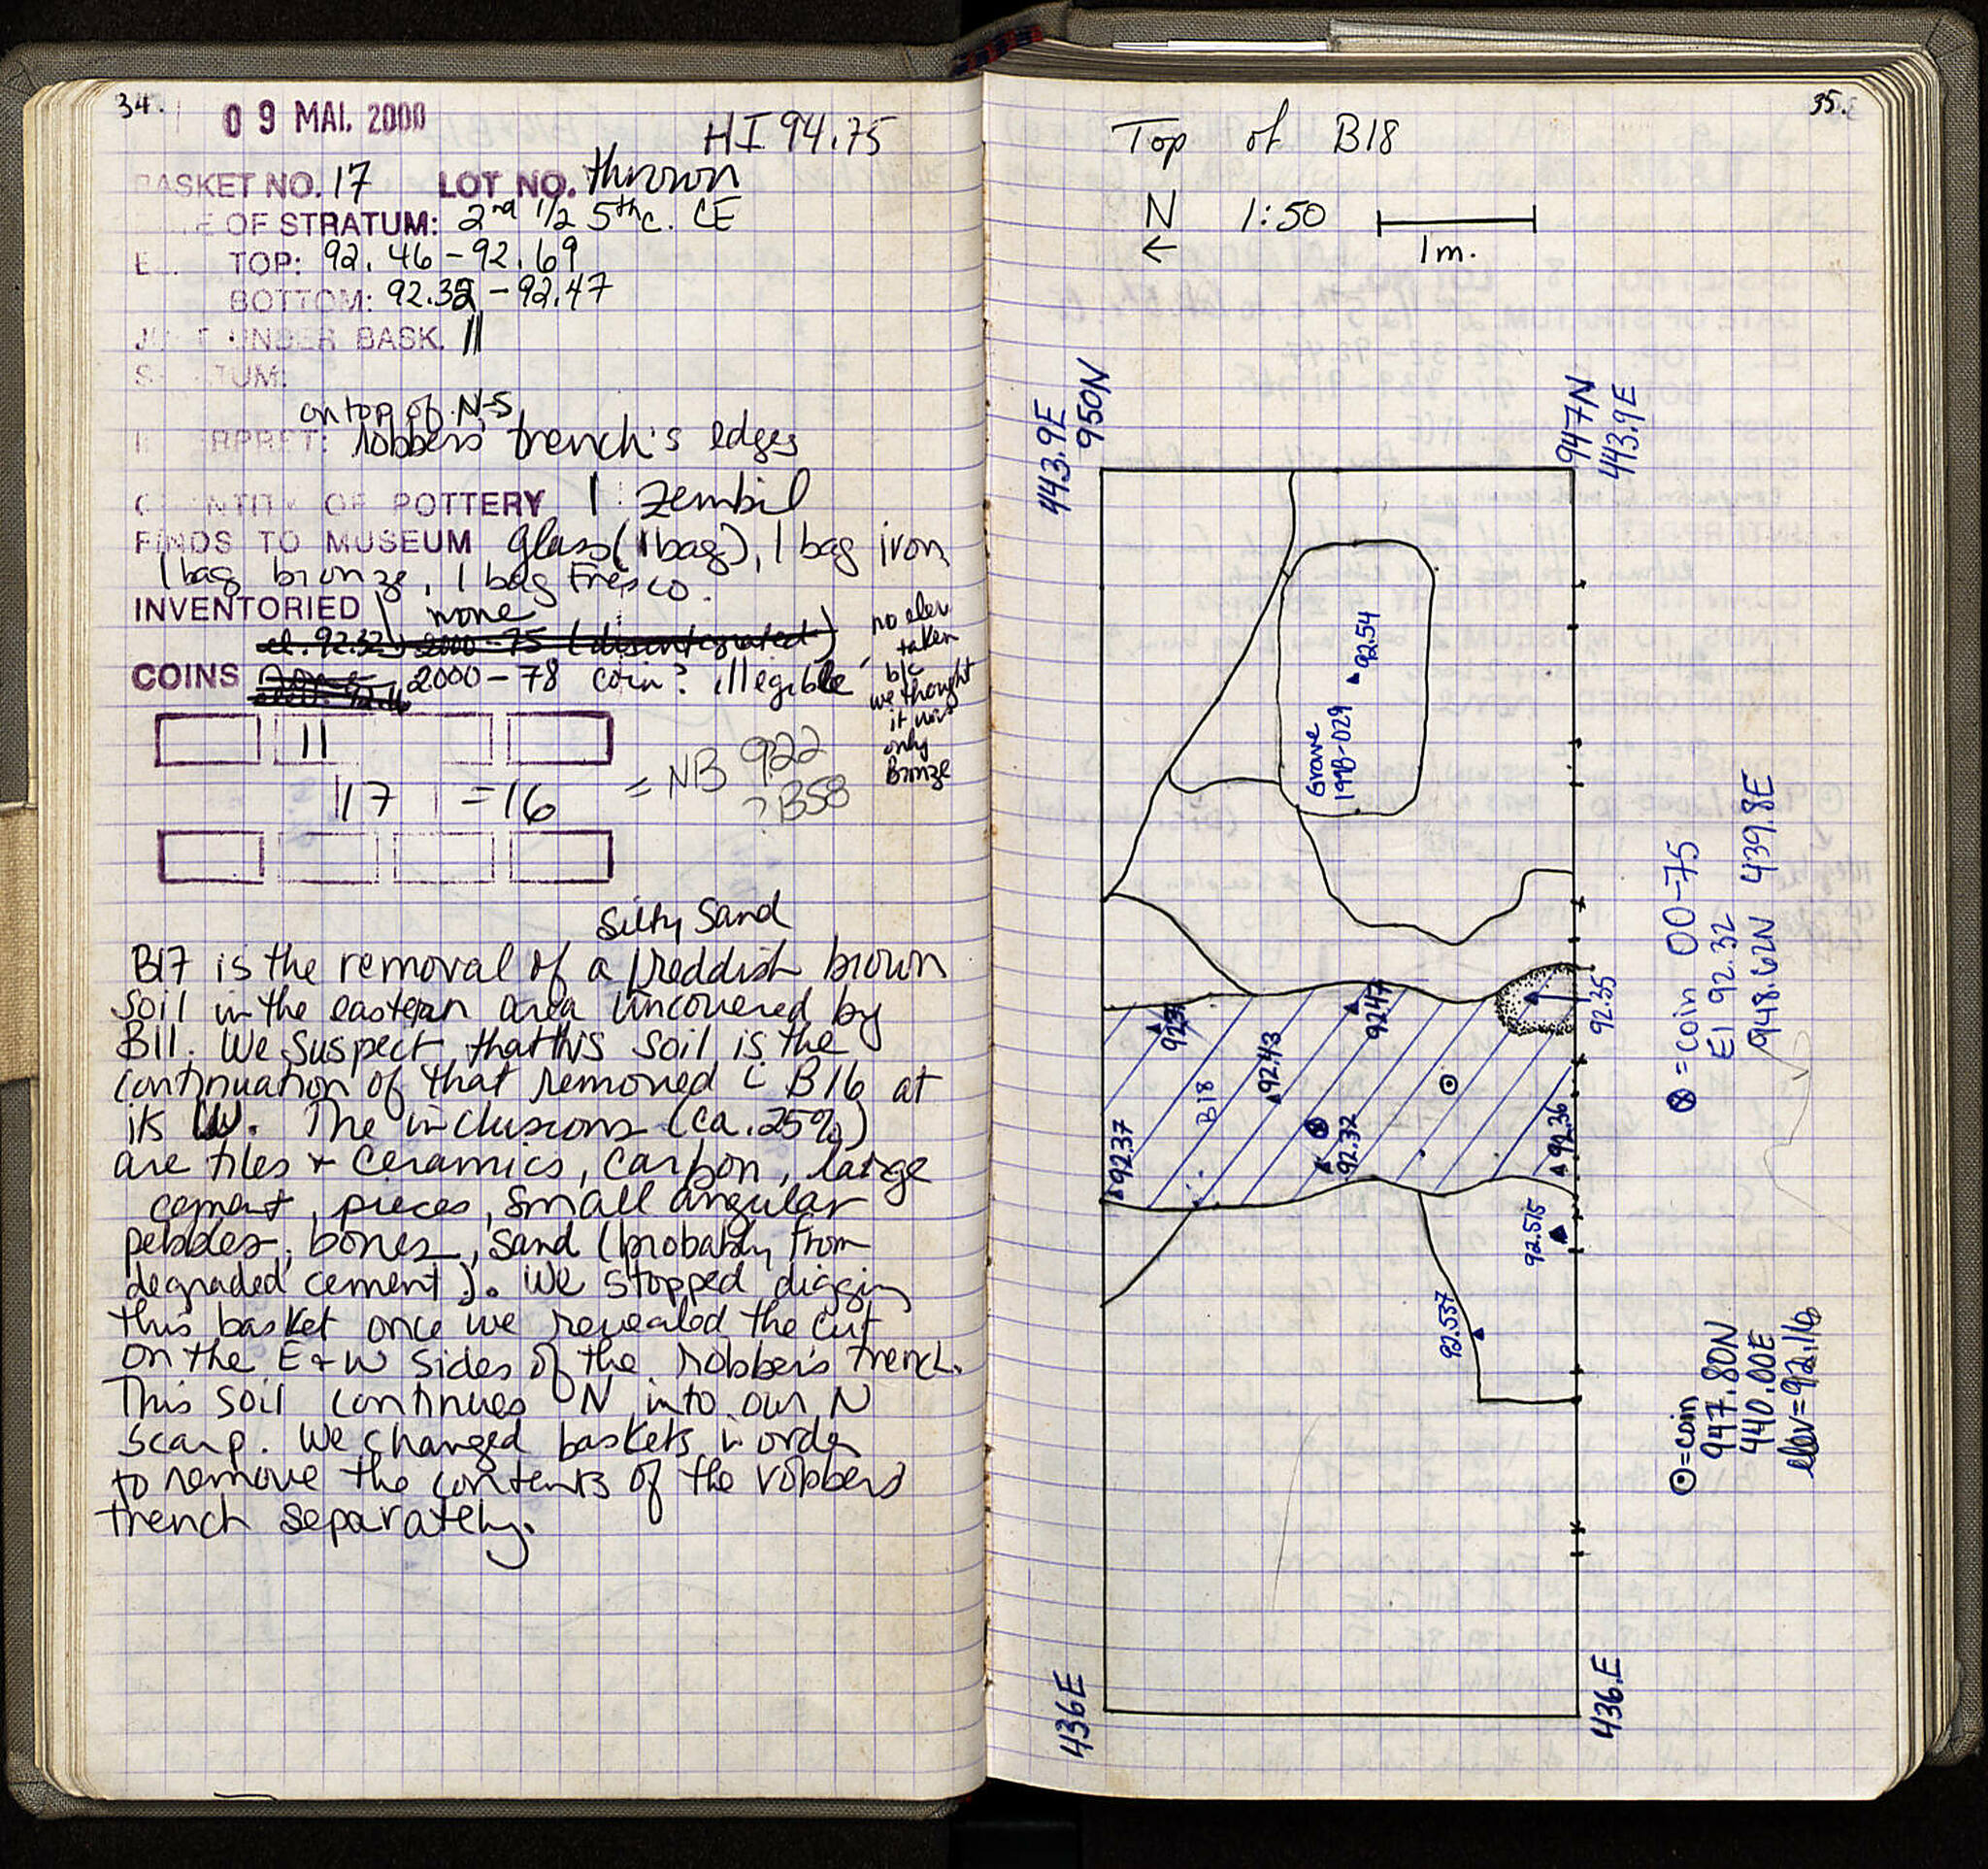 34.
09 MAI. 2000
HI 94.75
BASKET NO. 17 LOT NO. thrown
OF STRATUM: 2nd 1/2 5th c. CE
TOP: 92.46 - 92.69
BOTTOM: 92.32 - 92.47
UNDER BASK. 11
on top of N-S
robbers trench's edges
OF POTTERY 1 zembil
FINDS TO MUSEUM glass (1 bag), 1 bag iron
1 bag bronze, 1 bag Fresco.
INVENTORIED none
el. 92.32 2000-75 (disintegrated)
COINS 2000-78 coin? illegible
no elev
taken
b/c
we thought
it was
only
Bronze
11
17 = 16
= NB 922
B58
silty sand
B17 is the removal of a reddish brown
soil in the eastern area uncovered by
B11. We suspect that this soil is the
continuation of that removed c̄ B16 at
its W. The inclusions (ca. 25%)
are tiles + ceramics, carbon, large
cement pieces, small angular
pebbles, bones, sand (probably from
degraded cement). We stopped diggin
this basket once we revealed the cut
on the E + W sides of the robber's trench.
This soil continues N into our N
scarp. We changed baskets in order
to remove the contents of the robbers
trench separately.
35.
Top of B18
N 1:50
←
1m.
443.9E
950N
947N
443.9E
92.54
Grave
1998-029
92.47
92.35
92.43
B18
92.37
92.32
92.36
92.515
92.537
⊗ = coin 00-75
El 92.32
948.62N 439.8E
⊙ = coin
947.80N
440.00E
elev = 92.16
436E
436.E